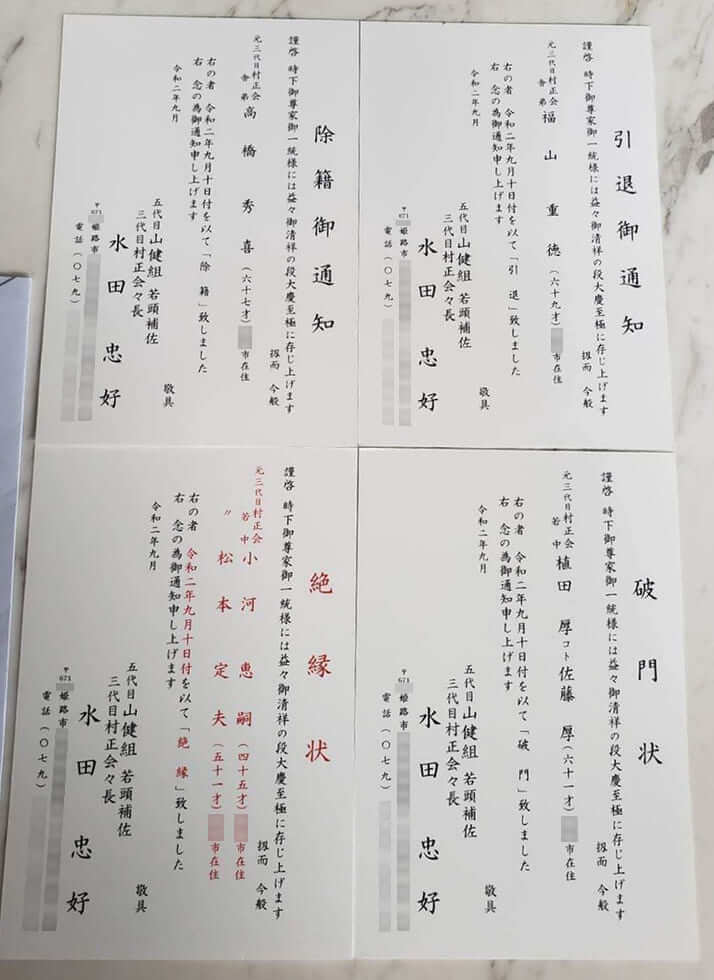 引退御通知
謹啓 時下御尊家御一統様には益々御清祥の段大慶至極に存じ上げます
扨而 今般
元三代目村正会
舎弟 福山重徳(六十九才)市在住
右の者 令和二年九月十日付を以て「引退」致しました
右 念の為御通知申し上げます
敬具
令和二年九月
五代目山健組 若頭補佐
三代目村正会々長
水田忠好
〒671
姫路市
電話(〇七九)
除籍御通知
謹啓 時下御尊家御一統様には益々御清祥の段大慶至極に存じ上げます
扨而 今般
元三代目村正会
舎弟 高橋秀喜(六十七才)市在住
右の者 令和二年九月十日付を以て「除籍」致しました
右 念の為御通知申し上げます
敬具
令和二年九月
五代目山健組 若頭補佐
三代目村正会々長
水田忠好
〒671
姫路市
電話(〇七九)
破門状
謹啓 時下御尊家御一統様には益々御清祥の段大慶至極に存じ上げます
扨而 今般
元三代目村正会
若中 植田厚コト佐藤厚(六十一才)市在住
右の者 令和二年九月十日付を以て「破門」致しました
右 念の為御通知申し上げます
敬具
令和二年九月
五代目山健組 若頭補佐
三代目村正会々長
水田忠好
〒671
姫路市
電話(〇七九)
絶縁状
謹啓 時下御尊家御一統様には益々御清祥の段大慶至極に存じ上げます
扨而 今般
元三代目村正会
若中 小河恵嗣(四十五才)市在住
〃 松本定夫(五十一才)市在住
右の者 令和二年九月十日付を以て「絶縁」致しました
右 念の為御通知申し上げます
敬具
令和二年九月
五代目山健組 若頭補佐
三代目村正会々長
水田忠好
〒671
姫路市
電話(〇七九)